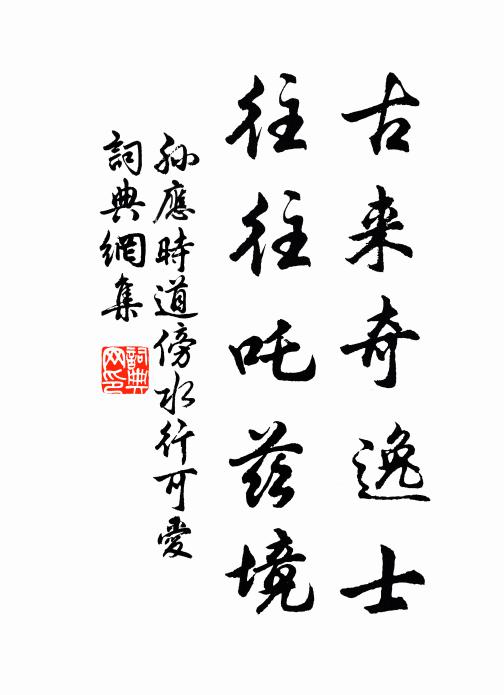 古来奇逸士
往往吒茲境
孫應時道傍水行可愛
詞典網集
詞典网印